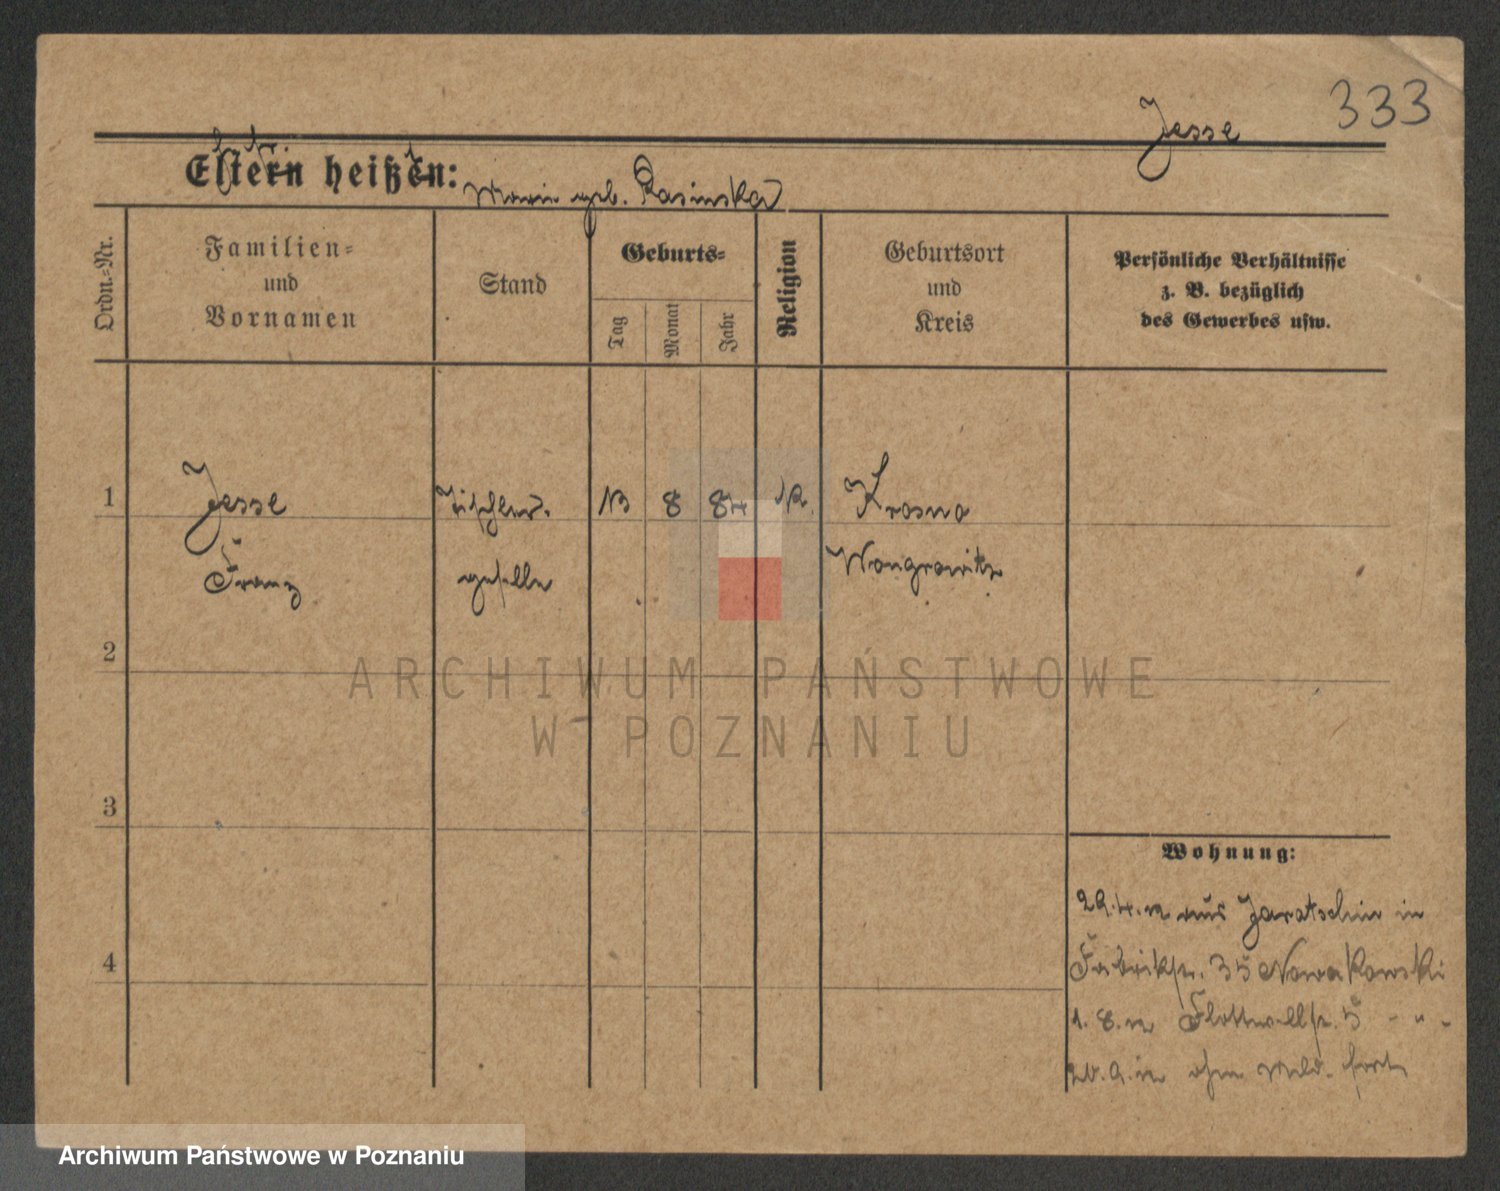 333
Jesse
Eltern heißen:
Marie geb. Rasinska
Ordn.-Nr.
Familien-
und
Vornamen
Stand
Geburts-
Tag
Monat
Jahr
Religion
Geburtsort
und
Kreis
Persönliche Verhältnisse
z. B. bezüglich
des Gewerbes usw.
1
Jesse
Tischler-
13
8
84
K.
Krosno
Franz
geselle
Wongrowitz
2
3
4
Wohnung:
29.4.12 aus Jaratschin in
Fabrikstr. 35 Nowakowski
1. 8. 12 Flottwellstr. 5 - " -
20. 9. 12 ohne Meld. fort
ARCHIWUM PAŃSTWOWE
W POZNANIU
Archiwum Państwowe w Poznaniu